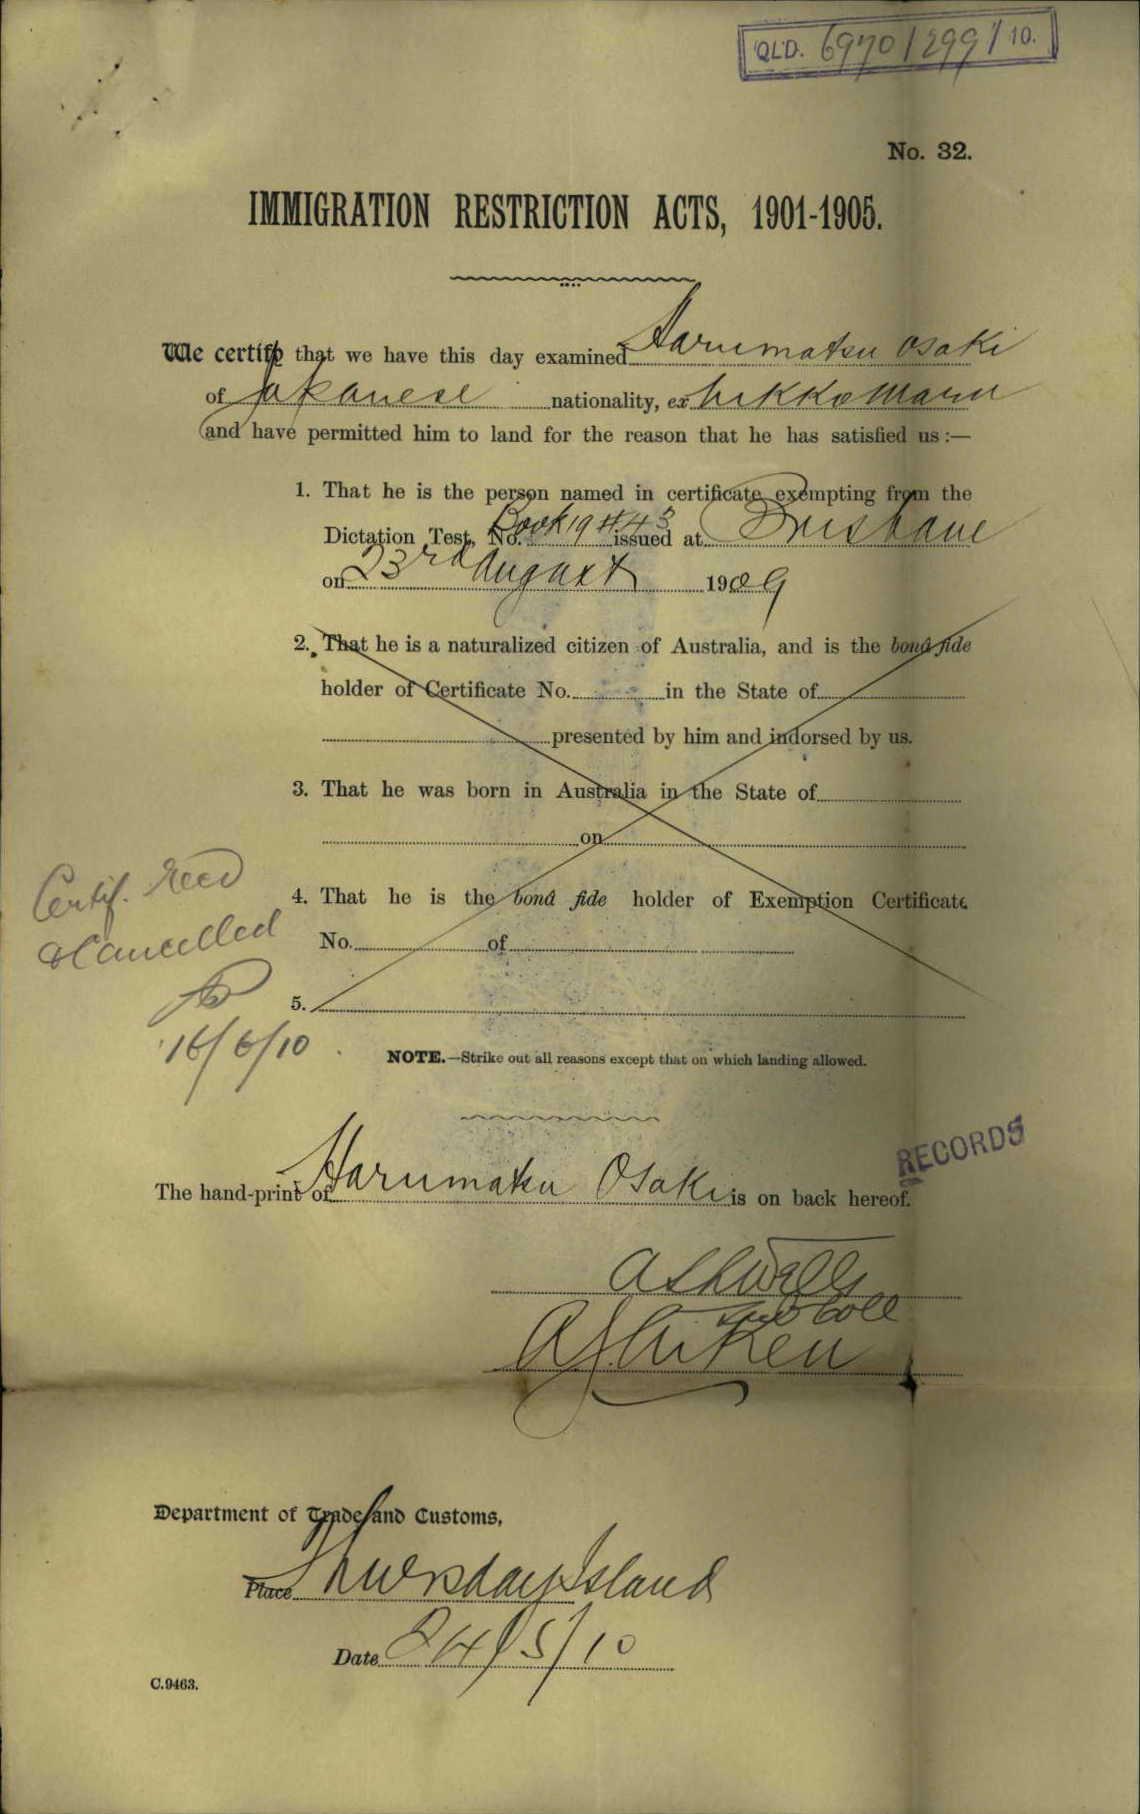 QLD. 6970/299/10.
No. 32.
IMMIGRATION RESTRICTION ACTS, 1901-1905.
We certify that we have this day examined Harumatsu Osaki
of Japanese nationality, ex Nikko Maru
and have permitted him to land for the reason that he has satisfied us :—
1. That he is the person named in certificate exempting from the
Dictation Test, No. Book 19 #43 issued at Brisbane
on 23rd August 1909
2. That he is a naturalized citizen of Australia, and is the bonâ fide
holder of Certificate No. in the State of
presented by him and indorsed by us.
3. That he was born in Australia in the State of
on
4. That he is the bonâ fide holder of Exemption Certificate
No. of
5.
Certif. Recd
& Cancelled
16/6/10
NOTE.—Strike out all reasons except that on which landing allowed.
RECORDS
The hand-print of Harumatsu Osaki is on back hereof.
Sub Coll
Department of Trade and Customs,
Place Thursday Island
Date 24/5/10
C.9463.